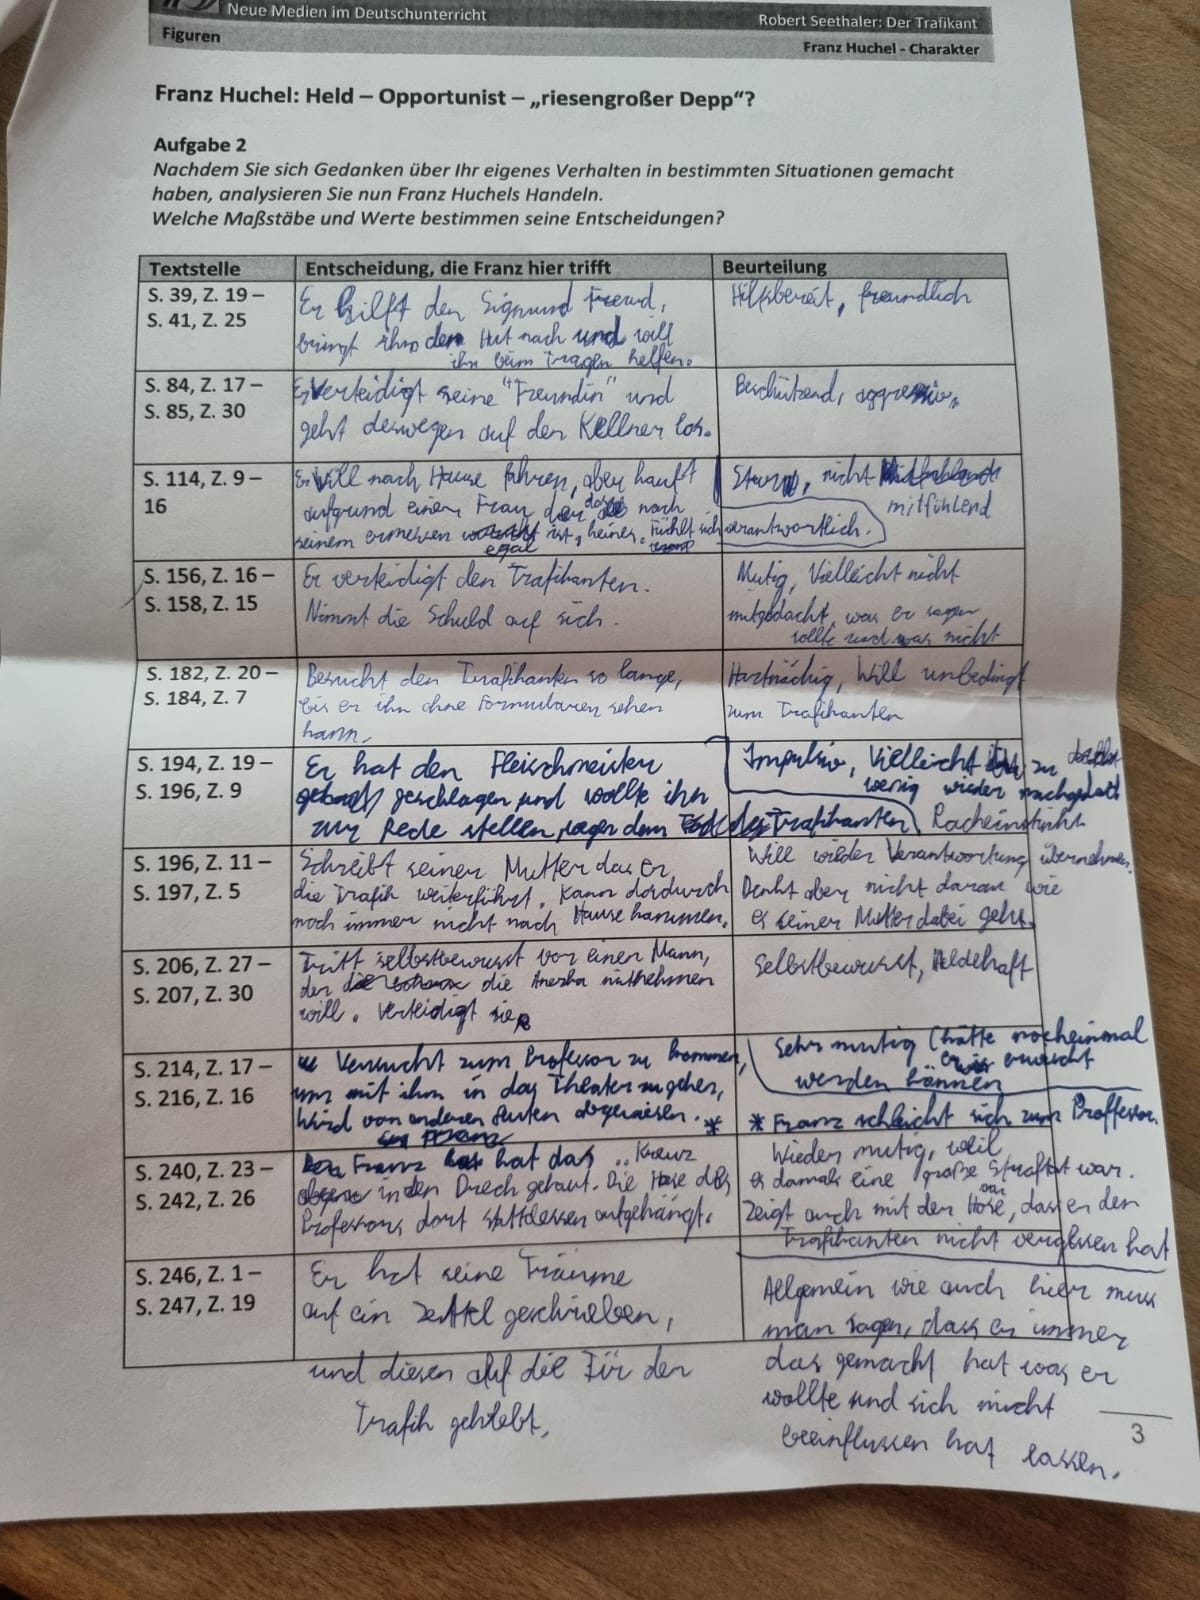 Neue Medien im Deutschunterricht
Robert Seethaler: Der Trafikant
Figuren
Franz Huchel - Charakter
Franz Huchel: Held – Opportunist – „riesengroßer Depp“?
Aufgabe 2
Nachdem Sie sich Gedanken über Ihr eigenes Verhalten in bestimmten Situationen gemacht
haben, analysieren Sie nun Franz Huchels Handeln.
Welche Maßstäbe und Werte bestimmen seine Entscheidungen?
Textstelle
Entscheidung, die Franz hier trifft
Beurteilung
S. 39, Z. 19 –
S. 41, Z. 25
Er hilft den Sigmund Freud,
bringt ihm den Hut nach und will
ihn beim Tragen helfen.
Hilfsbereit, freundlich
S. 84, Z. 17 –
S. 85, Z. 30
Er verteidigt seine "Freundin" und
geht deswegen auf den Kellner los.
Beschützend, aggressiv.
S. 114, Z. 9 –
16
Er will nach Hause fahren, aber
aufgrund einer Frau nach
seinem ermessen egal ist, keines. Fühlt sich
verantwortlich.
Stur, nicht
mitfühlend
S. 156, Z. 16 –
S. 158, Z. 15
Er verteidigt den Trafikanten.
Nimmt die Schuld auf sich.
Mutig, Vielleicht nicht
mitgedacht, was er sagen
sollte und was nicht
S. 182, Z. 20 –
S. 184, Z. 7
Besucht den Trafikanten so lange,
bis er ihn ohne Formularen sehen
kann.
Hartnäckig, Will unbedingt
zum Trafikanten
S. 194, Z. 19 –
S. 196, Z. 9
Er hat den Fleischmeister
geschlagen und wollte ihn
zur Rede stellen wegen dem Tod des Trafikanten
Impulsiv, Vielleicht zu
wenig wieder nachgedacht
Racheinstinkt
S. 196, Z. 11 –
S. 197, Z. 5
Schreibt seiner Mutter das er
die Trafik weiterführt. Kann dardurch
noch immer nicht nach Hause kommen.
Will wieder Verantwortung übernehmen.
Denkt aber nicht daran wie
es seiner Mutter dabei geht.
S. 206, Z. 27 –
S. 207, Z. 30
Tritt selbstbewusst vor einen Mann,
der die Anezka mitnehmen
will. Verteidigt sie
Selbstbewusst, Heldehaft
S. 214, Z. 17 –
S. 216, Z. 16
Versucht zum Professor zu kommen,
um mit ihm in das Theater zu gehen,
Wird von anderen Leuten abgewiesen. *
Sehr mutig (hätte nocheinmal
erwischt
werden können
* Franz schleicht sich zum Proffessor.
S. 240, Z. 23 –
S. 242, Z. 26
Franz hat das Kreuz
in den Dreck gehaut. Die Hose des
Professors dort stattdessen aufgehängt.
Wieder mutig, weil
es damals eine große Straftat war.
Zeigt auch mit der Hose, dass er den
Trafikanten nicht vergessen hat
S. 246, Z. 1 –
S. 247, Z. 19
Er hat seine Träume
auf ein Zettel geschrieben,
und diesen auf die Tür der
Trafik geklebt.
Allgemein wie auch hier muss
man sagen, dass er immer
das gemacht hat was er
wollte und sich nicht
beeinflussen hat lassen.
3